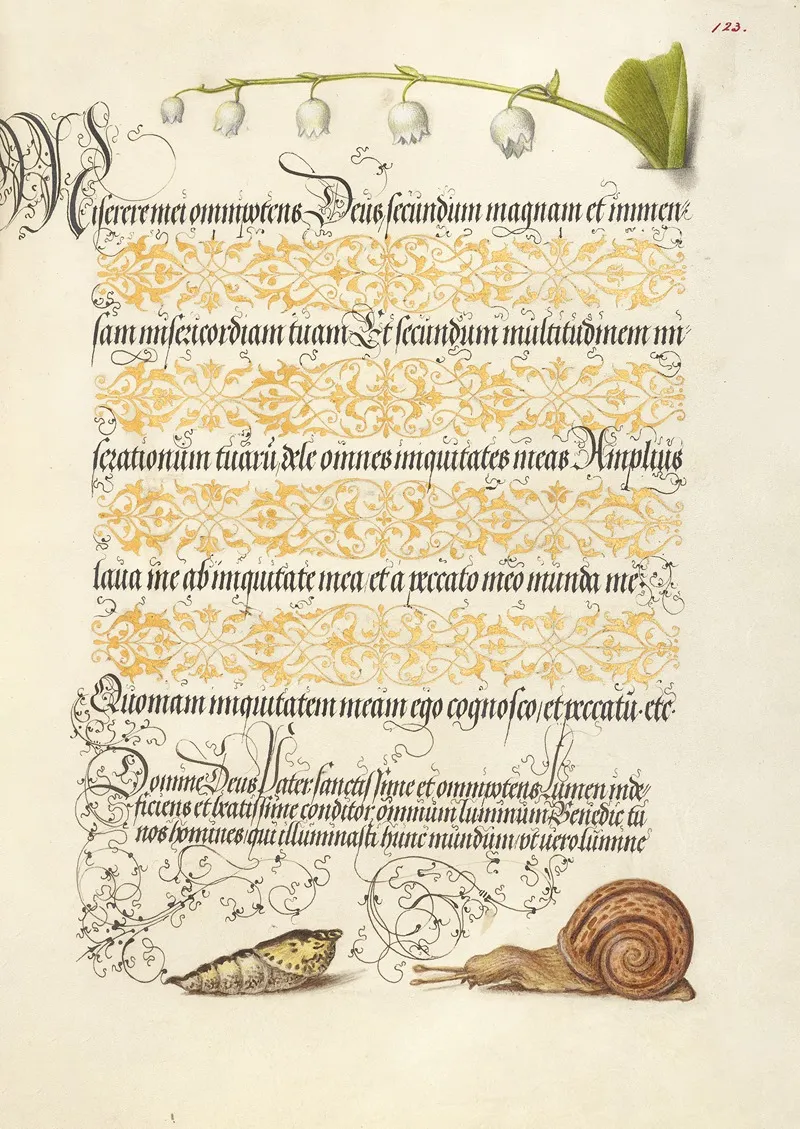 123.
Miserere mei omnipotens Deus, secundum magnam et immen-
sam misericordiam tuam Et secundum multitudinem mi-
serationum tuarū, dele omnes iniquitates meas Amplius
laua me ab iniquitate mea, et a peccato meo munda me
Quoniam iniquitatem meam ego cognosco, et peccatū. etc.
Domine Deus Pater sanctissime et omnipotens, Lumen inde-
ficiens et beatissime conditor, omnium luminum Benedic tu
nos homines, qui illuminasti hunc mundum, vt uero lumine